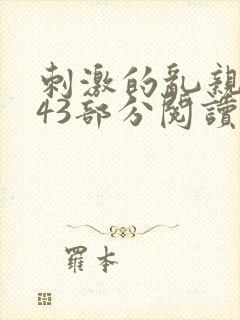 刺激的亂親
43部分閱讀
羅本